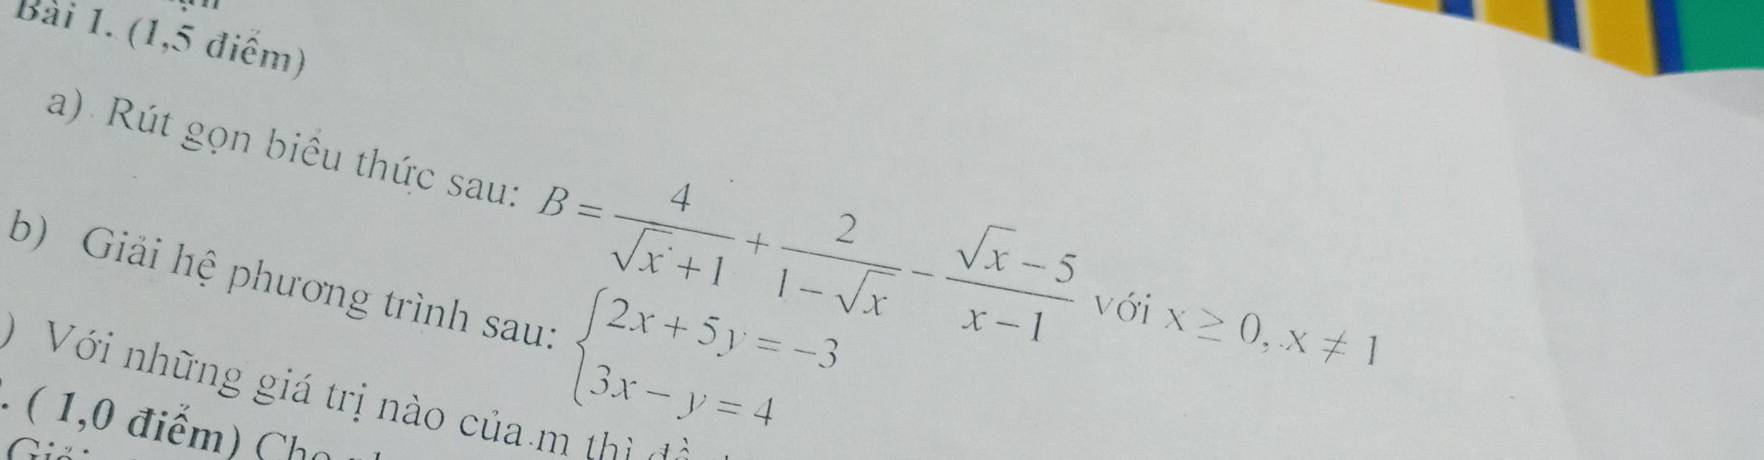 Bài 1. (1,5 điểm)
a) Rút gọn biểu thức sau: B = 4/(√x + 1) + 2/(1 − √x) − (√x − 5)/(x − 1) với x ≥ 0, x ≠ 1
b) Giải hệ phương trình sau: { 2x + 5y = −3
3x − y = 4
) Với những giá trị nào của m thì
. ( 1,0 điểm)